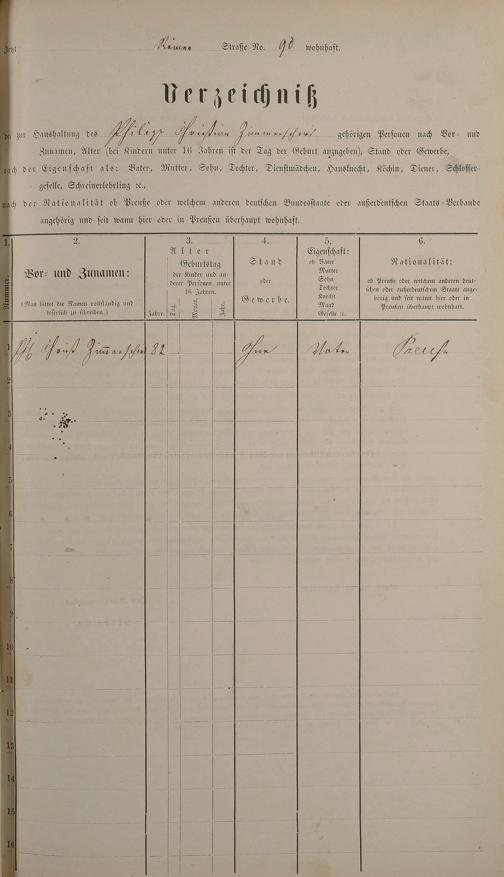 Jetzt Römer Straße No. 98 wohnhaft.
Verzeichniß
der zur Haushaltung des Philipp Christian Zimmerschied gehörigen Personen nach Vor- und
Zunamen, Alter (bei Kindern unter 16 Jahren ist der Tag der Geburt anzugeben), Stand oder Gewerbe,
nach der Eigenschaft als: Vater, Mutter, Sohn, Tochter, Dienstmädchen, Hausknecht, Köchin, Diener, Schlosser-
geselle, Schreinerlehrling ꝛc.,
nach der Nationalität ob Preuße oder welchem anderen deutschen Bundesstaate oder außerdeutschen Staats-Verbande
angehörig und seit wann hier oder in Preußen überhaupt wohnhaft.
1.
Nummer.
2.
Vor- und Zunamen:
(Man bittet die Namen vollständig und
leserlich zu schreiben.)
3.
Alter
Geburtstag
der Kinder und an-
derer Personen unter
16 Jahren.
Jahre.
Tag.
Monat.
Jahr.
4.
Stand
oder
Gewerbe.
5.
Eigenschaft:
ob Vater
Mutter
Sohn
Tochter
Knecht
Magd
Geselle ꝛc.
6.
Nationalität:
ob Preuße oder welchem anderen deut-
schen oder außerdeutschen Staate ange-
hörig und seit wann hier oder in
Preußen überhaupt wohnhaft.
1 Ph Christ Zimmerschied 82 Ohne Vater Preuße
2
3
4
5
6
7
8
9
10
11
12
13
14
15
16